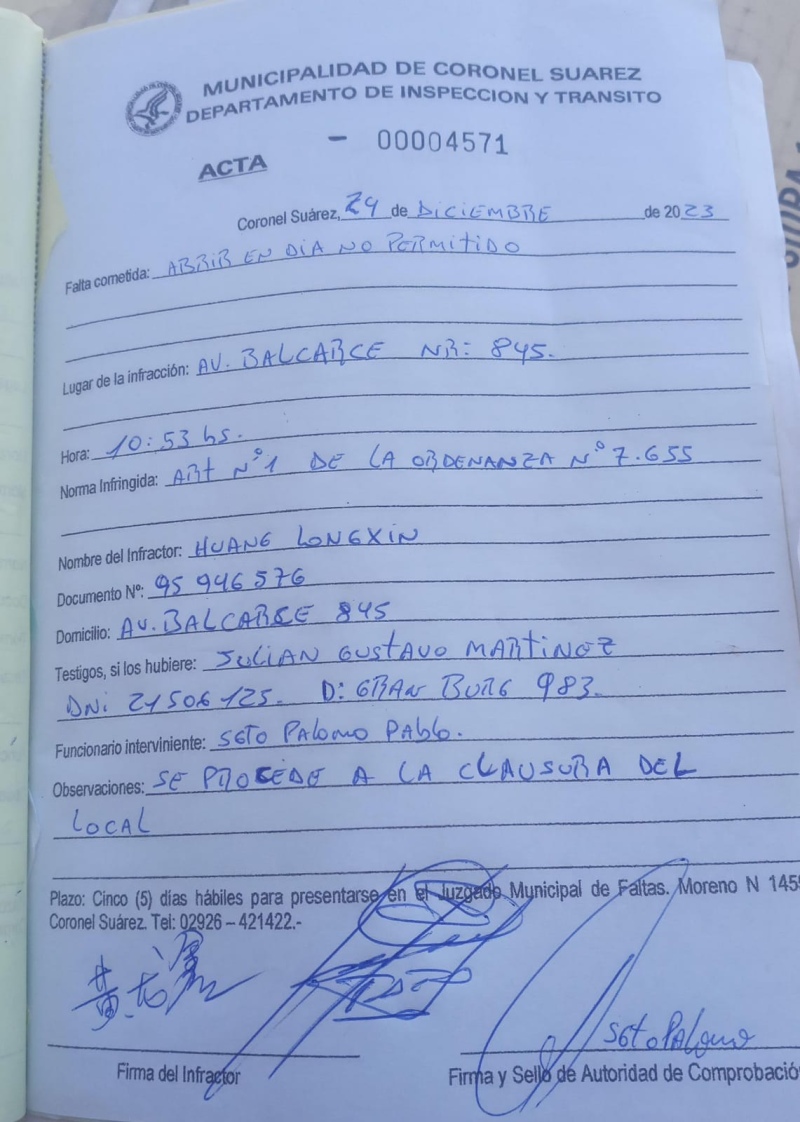 MUNICIPALIDAD DE CORONEL SUAREZ
DEPARTAMENTO DE INSPECCION Y TRANSITO
ACTA - 00004571
Coronel Suárez, 24 de DICIEMBRE de 2023
Falta cometida: ABRIR EN DIA NO PERMITIDO
Lugar de la infracción: AV. BALCARCE NR: 845.
Hora: 10:53 hs.
Norma Infringida: ART N°1 DE LA ORDENANZA N° 7.655
Nombre del Infractor: HUANG LONGXIN
Documento Nº: 95 946 576
Domicilio: AV. BALCARCE 845
Testigos, si los hubiere: JULIAN GUSTAVO MARTINEZ
DNI 21506125. D: GRAN BURG 983.
Funcionario interviniente: SOTO PALOMO PABLO.
Observaciones: SE PROCEDE A LA CLAUSURA DEL
LOCAL
Plazo: Cinco (5) días hábiles para presentarse en el Juzgado Municipal de Faltas. Moreno N 1455
Coronel Suárez. Tel: 02926 – 421422.-
黄龙
Soto Palomo
Firma del Infractor
Firma y Sello de Autoridad de Comprobació